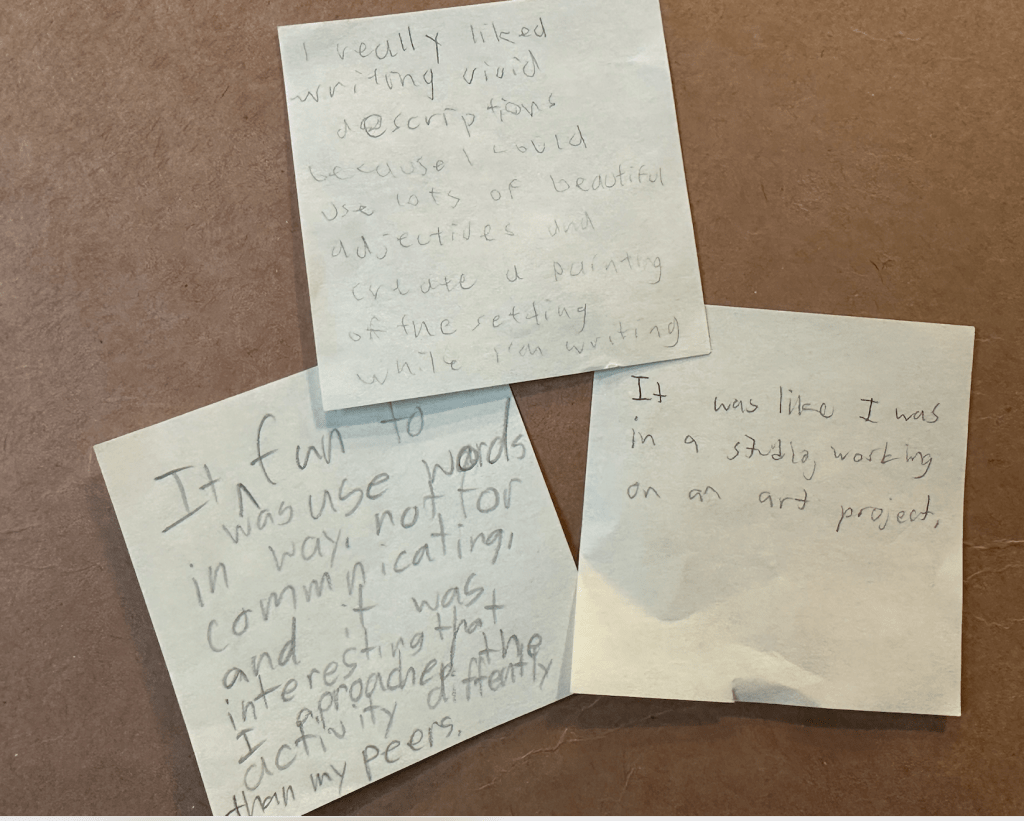 I really liked
writing vivid
descriptions
because I could
use lots of beautiful
adjectives and
create a painting
of the setting
while I'm writing
It fun to
^
was use words
in way, not for
communicating,
and it was
interesting that
I pproached the
activity diffently
than my peers.
It was like I was
in a studio, working
on an art project.